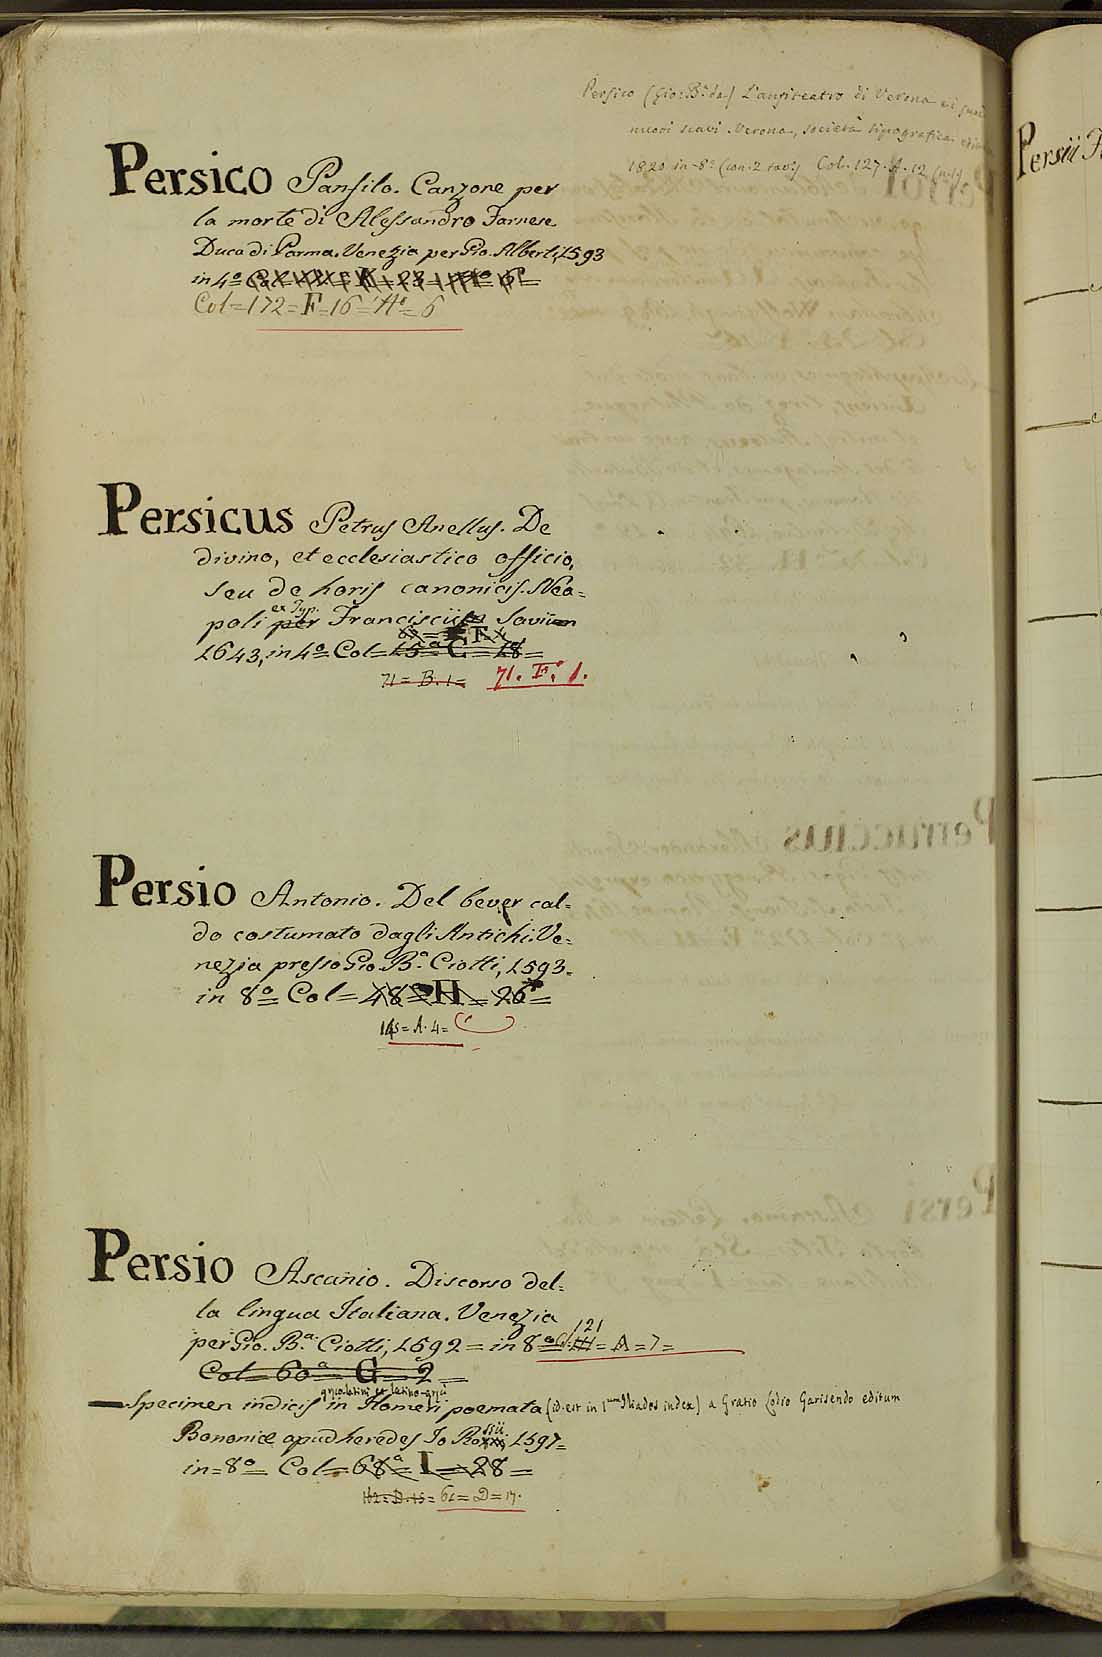 Persico (Gio: Bᵃ da) L'anfiteatro di Verona e i suoi
nuovi scavi. Verona, società tipografica
1820 in-8° (con 2 tav.) Col. 127. A. 12 (n. 1)
Persico Panfilo. Canzone per
la morte di Alessandro Farnese
Duca di Parma. Venezia per Gio. Alberti, 1593
in 4º
Col = 172 = F = 16 = Nº = 6
Persicus Petrus Anellus. De
divino, et ecclesiastico officio,
seu de horis canonicis. Nea=
ex Typ.
poli per Francisci Savii
1643, in 4º Col = 15ª = C = 18 =
71 = B. 1 = 71. F. 1.
Persio Antonio. Del bever cal=
do costumato dagli Antichi. Ve=
nezia presso Gio. Bª. Ciotti, 1593.
in 8º Col = 48 = H = 26 =
145 = A. 4 =
Persio Ascanio. Discorso del=
la lingua Italiana. Venezia
121
per Gio. Bª. Ciotti, 1592 = in 8º = A = 7 =
Col = 60ª = G = 2 =
grecolatini et latino-græci
Specimen indicis in Homeri poemata (id. est in 1um Iliados index) a Gratio Lodio Garisendo editum
Bononiæ apud heredes Jo Rossii 1597=
in = 8º = Col = 68ª = I = 28 =
162 = D. 15 = 61 = D = 17.
Persii